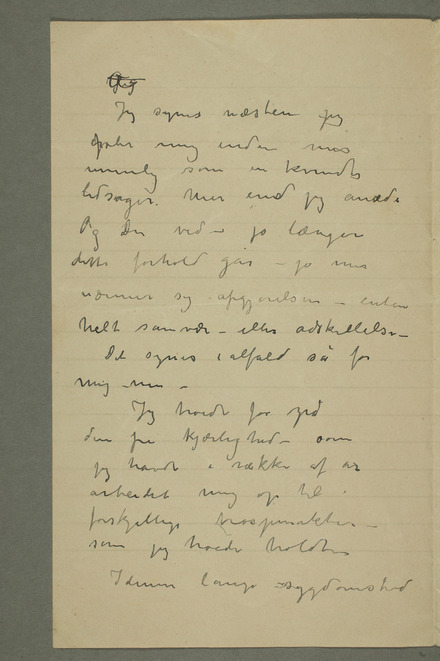 Jeg synes næsten jeg
føler mig inden mus
umulig som en kvindes
ledsager. Mer end jeg anede
Og Du ved – jo længer
dette forhold går – jo mer
nærmer sig afgjørelsen – enten
helt samvær – eller adskillelse –
Det synes i alfald så for
mig –
Jeg havde for
den fri Kjærlighed – som
jeg havde i række af år
arbeidet mig op til
forskjellige
som jeg havde holdt
I denne lange sygdomstid